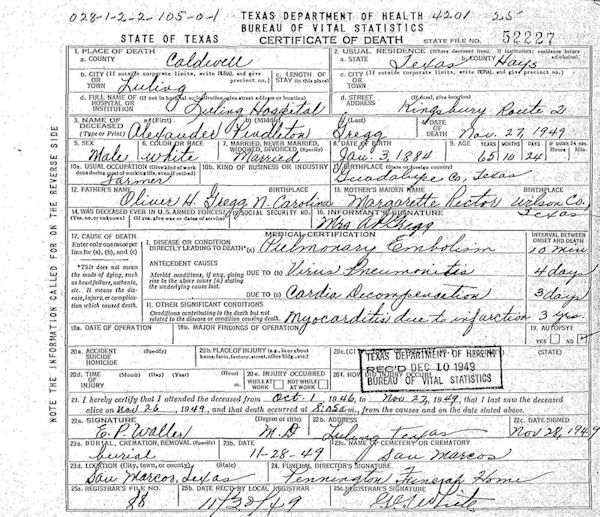 028-1-2-2-105-0-1 TEXAS DEPARTMENT OF HEALTH 4201 25
BUREAU OF VITAL STATISTICS
STATE OF TEXAS CERTIFICATE OF DEATH STATE FILE NO. 52227
1. PLACE OF DEATH 2. USUAL RESIDENCE (Where deceased lived. If institution: residence before admission).
a. COUNTY Caldwell a. STATE Texas b. COUNTY Hays
b. CITY (If outside corporate limits, write RURAL and give precinct no.) OR TOWN Luling c. LENGTH OF STAY (in this place) c. CITY (If outside corporate limits, write RURAL and give precinct no.) OR TOWN
d. FULL NAME OF (If not in hospital or institution, give street address or location) HOSPITAL OR INSTITUTION Luling Hospital d. STREET ADDRESS (If rural, give location) Kingsbury Route 2
3. NAME OF DECEASED (Type or Print) a. (First) Alexander b. (Middle) Pendleton c. (Last) Gregg 4. DATE OF DEATH Nov. 27, 1949
5. SEX Male 6. COLOR OR RACE white 7. MARRIED, NEVER MARRIED, WIDOWED, DIVORCED (Specify) Married 8. DATE OF BIRTH Jan. 3, 1884 9. AGE YEARS 65 MONTHS 10 DAYS 24 IF UNDER 24 HRS. Hours Min.
10a. USUAL OCCUPATION (Give kind of work done during most of working life, even if retired) Farmer 10b. KIND OF BUSINESS OR INDUSTRY 11. BIRTHPLACE (State or foreign country) Guadalupe Co, Texas
12. FATHER'S NAME BIRTHPLACE 13. MOTHER'S MAIDEN NAME BIRTHPLACE
Oliver H. Gregg N. Carolina Margarette Rector Wilson Co., Texas
14. WAS DECEASED EVER IN U.S. ARMED FORCES? (Yes, no, or unknown) (If yes, give war or dates of service) 15. SOCIAL SECURITY NO. 16. INFORMANT'S SIGNATURE
Mrs A P Gregg
MEDICAL CERTIFICATION
17. CAUSE OF DEATH Enter only one cause per line for (a), (b), and (c) I. DISEASE OR CONDITION DIRECTLY LEADING TO DEATH* (a) Pulmonary Embolism INTERVAL BETWEEN ONSET AND DEATH 10 min
*This does not mean the mode of dying, such as heart failure, asthenia, etc. It means the disease, injury, or complication which caused death.
ANTECEDENT CAUSES
Morbid conditions, if any, giving rise to the above cause (a) stating the underlying cause last.
DUE TO (b) Virus Pneumonitis 4 days
DUE TO (c) Cardia Decompensation 3 days
II. OTHER SIGNIFICANT CONDITIONS
Conditions contributing to the death but not related to the disease or condition causing death. Myocarditis due to infarction 3 yrs.
18a. DATE OF OPERATION 18b. MAJOR FINDINGS OF OPERATION 19. AUTOPSY? YES NO
20a. ACCIDENT SUICIDE HOMICIDE (Specify) 20b. PLACE OF INJURY (e.g., in or about home, farm, factory, street, office bldg., etc.) 20c. (STATE)
20d. TIME OF INJURY (Month) (Day) (Year) (Hour) 20e. INJURY OCCURRED WHILE AT WORK NOT WHILE AT WORK 20f. HOW DID INJURY OCCUR?
TEXAS DEPARTMENT OF HEALTH
REC'D DEC 10 1949
BUREAU OF VITAL STATISTICS
21. I hereby certify that I attended the deceased from Oct. 1 1946, to Nov 27, 1949, that I last saw the deceased
alive on Nov 26, 1949, and that death occurred at 8:05a m., from the causes and on the date stated above.
22a. SIGNATURE (Degree or title) 22b. ADDRESS 22c. DATE SIGNED
E. P. Waller M.D Luling Texas Nov 28, 1949
23a. BURIAL, CREMATION, REMOVAL (Specify) burial 23b. DATE 11-28-49 23c. NAME OF CEMETERY OR CREMATORY San Marcos
23d. LOCATION (City, town, or county) (State) San Marcos, Texas 24. FUNERAL DIRECTOR'S SIGNATURE Pennington Funeral Home
25a. REGISTRAR'S FILE NO. 88 25b. DATE REC'D BY LOCAL REGISTRAR 11/28/49 25c. REGISTRAR'S SIGNATURE
NOTE THE INFORMATION CALLED FOR ON THE REVERSE SIDE